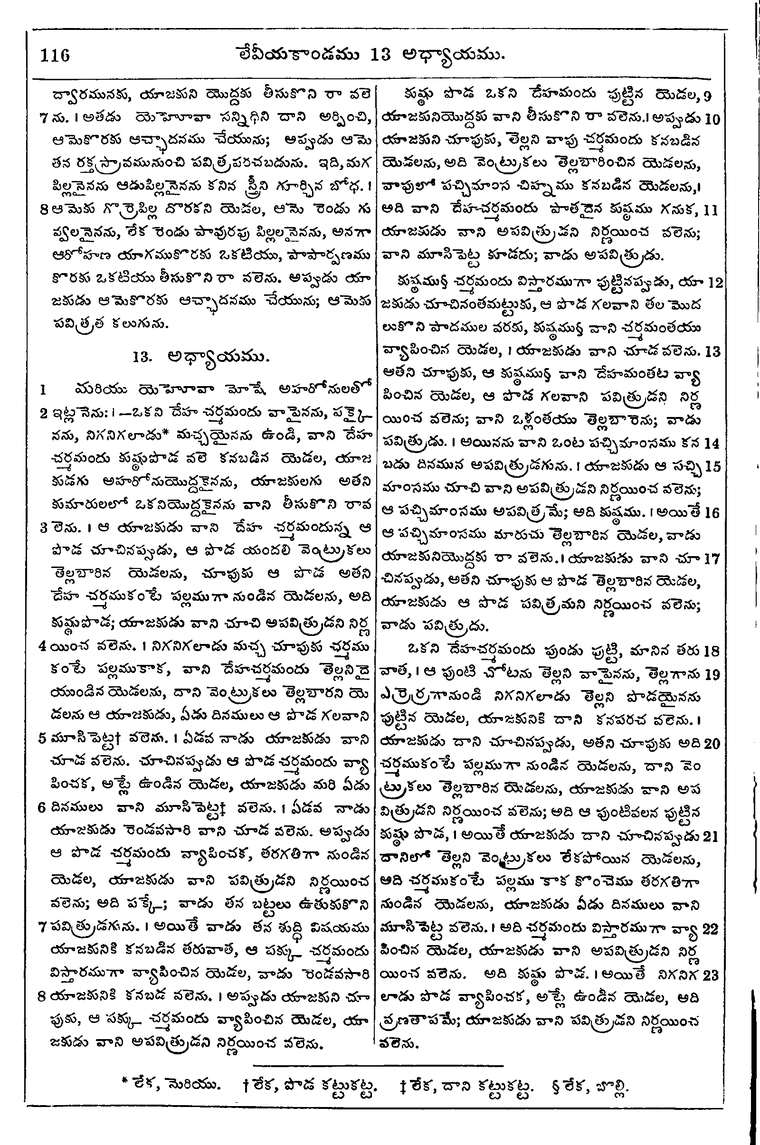 116 లేవీయకాండము 13 అధ్యాయము.
ద్వారమునకు, యాజకుని యొద్దకు తీసుకొని రా వలె
7 ను. । అతడు యెహోవా సన్నిధిని దాని అర్పించి,
ఆమెకొరకు ఆచ్ఛాదనము చేయును; అప్పుడు ఆమె
తన రక్తస్రావమునుంచి పవిత్రపరచబడును. ఇది, మగ
పిల్లనైనను ఆడుపిల్లనైనను కనిన స్త్రీని గూర్చిన బోధ. ।
8 ఆమెకు గొర్రెపిల్ల దొరకని యెడల, ఆమె రెండు గు
వ్వలనైనను, లేక రెండు పావురపు పిల్లలనైనను, అనగా
ఆరోహణ యాగముకొరకు ఒకటియు, పాపార్పణము
కొరకు ఒకటియు తీసుకొని రా వలెను. అప్పుడు యా
జకుడు ఆమెకొరకు ఆచ్ఛాదనము చేయును; ఆమెకు
పవిత్రత కలుగును.
13. అధ్యాయము.
1 మరియు యెహోవా మోషే అహరోనులతో
2 ఇట్లనెను: । —ఒకని దేహ చర్మమందు వాపైనను, పక్కై
నను, నిగనిగలాడు* మచ్చయైనను ఉండి, వాని దేహ
చర్మమందు కుష్ఠుపొడ వలె కనబడిన యెడల, యాజ
కుడగు అహరోనుయొద్దకైనను, యాజకులగు అతని
కుమారులలో ఒకనియొద్దకైనను వాని తీసుకొని రావ
3 లెను. । ఆ యాజకుడు వాని దేహ చర్మమందున్న ఆ
పొడ చూచినప్పుడు, ఆ పొడ యందలి వెంట్రుకలు
తెల్లబారిన యెడలను, చూపుకు ఆ పొడ అతని
దేహ చర్మముకంటే పల్లముగా నుండిన యెడలను, అది
కుష్ఠుపొడ; యాజకుడు వాని చూచి అపవిత్రుడని నిర్ణ
4 యించ వలెను. । నిగనిగలాడు మచ్చ చూపుకు చర్మము
కంటే పల్లముకాక, వాని దేహచర్మమందు తెల్లనిదై
యుండిన యెడలను, దాని వెంట్రుకలు తెల్లబారని యె
డలను ఆ యాజకుడు, ఏడు దినములు ఆ పొడ గలవాని
5 మూసిపెట్ట† వలెను. । ఏడవ నాడు యాజకుడు వాని
చూడ వలెను. చూచినప్పుడు ఆ పొడ చర్మమందు వ్యా
పించక, అట్లే ఉండిన యెడల, యాజకుడు మరి ఏడు
6 దినములు వాని మూసిపెట్ట‡ వలెను. । ఏడవ నాడు
యాజకుడు రెండవసారి వాని చూడ వలెను. అప్పుడు
ఆ పొడ చర్మమందు వ్యాపించక, తరగతిగా నుండిన
యెడల, యాజకుడు వాని పవిత్రుడని నిర్ణయించ
వలెను; అది పక్కే; వాడు తన బట్టలు ఉతుకుకొని
7 పవిత్రుడగును. । అయితే వాడు తన శుద్ధి విషయము
యాజకునికి కనబడిన తరువాత, ఆ పక్కు చర్మమందు
విస్తారముగా వ్యాపించిన యెడల, వాడు రెండవసారి
8 యాజకునికి కనబడ వలెను. । అప్పుడు యాజకుని చూ
పుకు, ఆ పక్కు చర్మమందు వ్యాపించిన యెడల, యా
జకుడు వాని అపవిత్రుడని నిర్ణయించ వలెను.
కుష్ఠు పొడ ఒకని దేహమందు పుట్టిన యెడల, 9
యాజకునియొద్దకు వాని తీసుకొని రా వలెను. । అప్పుడు 10
యాజకుని చూపుకు, తెల్లని వాపు చర్మమందు కనబడిన
యెడలను, అది వెంట్రుకలు తెల్లబారించిన యెడలను,
వాపులో పచ్చిమాంస చిహ్నము కనబడిన యెడలను, ।
అది వాని దేహచర్మమందు పాతదైన కుష్ఠము గనుక, 11
యాజకుడు వాని అపవిత్రుడని నిర్ణయించ వలెను;
వాని మూసిపెట్ట కూడదు; వాడు అపవిత్రుడు.
కుష్ఠము§ చర్మమందు విస్తారముగా పుట్టినప్పుడు, యా 12
జకుడు చూచినంతమట్టుకు, ఆ పొడ గలవాని తల మొద
లుకొని పాదముల వరకు, కుష్ఠము§ వాని చర్మమంతయు
వ్యాపించిన యెడల, । యాజకుడు వాని చూడ వలెను. 13
అతని చూపుకు, ఆ కుష్ఠము§ వాని దేహమంతట వ్యా
పించిన యెడల, ఆ పొడ గలవాని పవిత్రుడని నిర్ణ
యించ వలెను; వాని ఒళ్లంతయు తెల్లబారెను; వాడు
పవిత్రుడు. । అయినను వాని ఒంట పచ్చిమాంసము కన 14
బడు దినమున అపవిత్రుడగును. । యాజకుడు ఆ పచ్చి 15
మాంసము చూచి వాని అపవిత్రుడని నిర్ణయించ వలెను;
ఆ పచ్చిమాంసము అపవిత్రమే; అది కుష్ఠము. । అయితే 16
ఆ పచ్చిమాంసము మారుచు తెల్లబారిన యెడల, వాడు
యాజకునియొద్దకు రా వలెను. । యాజకుడు వాని చూ 17
చినప్పుడు, అతని చూపుకు ఆ పొడ తెల్లబారిన యెడల,
యాజకుడు ఆ పొడ పవిత్రమని నిర్ణయించ వలెను;
వాడు పవిత్రుడు.
ఒకని దేహచర్మమందు పుండు పుట్టి, మానిన తరు 18
వాత, । ఆ పుంటి చోటను తెల్లని వాపైనను, తెల్లగాను 19
ఎర్రెర్రగానుండి నిగనిగలాడు తెల్లని పొడయైనను
పుట్టిన యెడల, యాజకునికి దాని కనపరచ వలెను. ।
యాజకుడు దాని చూచినప్పుడు, అతని చూపుకు అది 20
చర్మముకంటే పల్లముగా నుండిన యెడలను, దాని వెం
ట్రుకలు తెల్లబారిన యెడలను, యాజకుడు వాని అప
విత్రుడని నిర్ణయించ వలెను; అది ఆ పుంటివలన పుట్టిన
కుష్ఠు పొడ, । అయితే యాజకుడు దాని చూచినప్పుడు 21
దానిలో తెల్లని వెంట్రుకలు లేకపోయిన యెడలను,
అది చర్మముకంటే పల్లము కాక కొంచెము తరగతిగా
నుండిన యెడలను, యాజకుడు ఏడు దినములు వాని
మూసిపెట్ట వలెను. । అది చర్మమందు విస్తారముగా వ్యా 22
పించిన యెడల, యాజకుడు వాని అపవిత్రుడని నిర్ణ
యించ వలెను. అది కుష్ఠు పొడ. । అయితే నిగనిగ 23
లాడు పొడ వ్యాపించక, అట్లే ఉండిన యెడల, అది
వ్రణతాపమే; యాజకుడు వాని పవిత్రుడని నిర్ణయించ
వలెను.
* లేక, మెరియు. † లేక, పొడ కట్టుకట్ట. ‡ లేక, దాని కట్టుకట్ట. § లేక, బొల్లి.